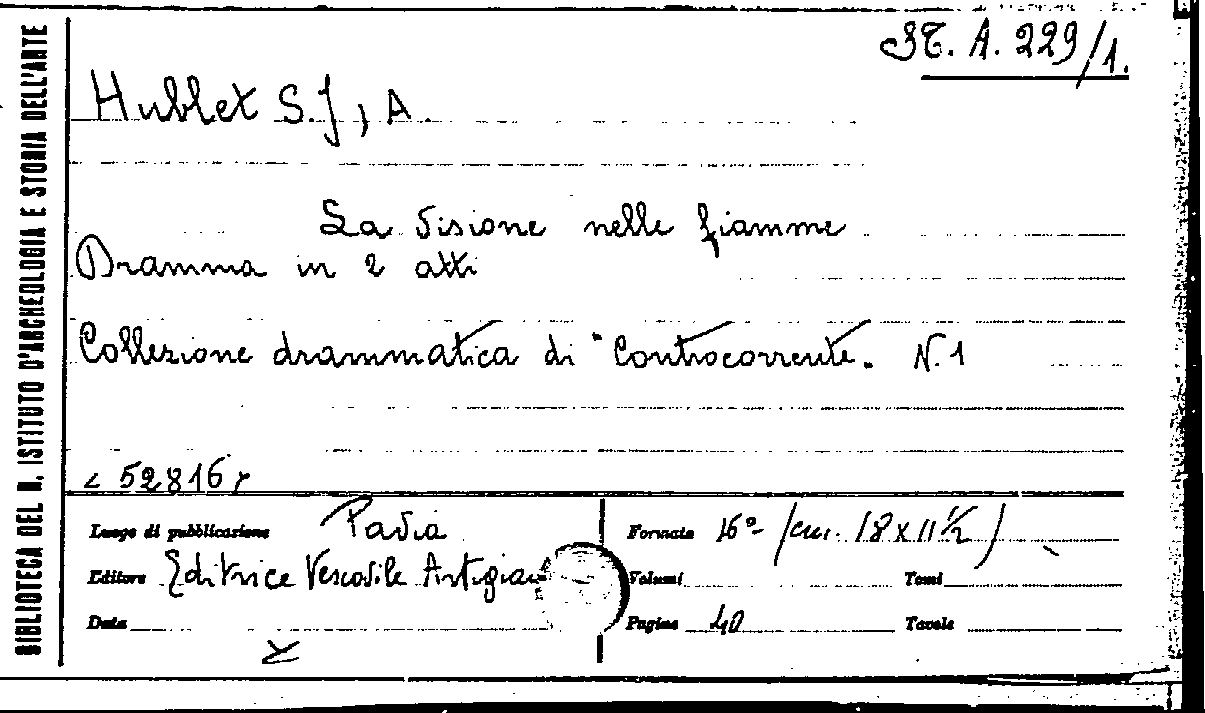 BIBLIOTECA DEL R. ISTITUTO D'ARCHEOLOGIA E STORIA DELL'ARTE
A. 229/1.
Hublet S.J, A.
La visione nelle fiamme
Dramma in 2 atti
Collezione drammatica di "Controcorrente". N. 1
< 52816 >
Luogo di pubblicazione Pavia
Editore Editrice Vescovile Artigian
Data
Formato 16° (cm. 18 x 11 ½)
Volumi Tomi
Pagine 40 Tavole